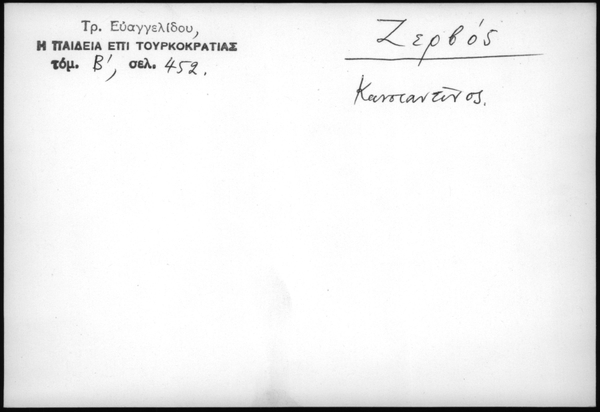 Τρ. Εὐαγγελίδου,
Η ΠΑΙΔΕΙΑ ΕΠΙ ΤΟΥΡΚΟΚΡΑΤΙΑΣ
τόμ. Β', σελ. 452.
Ζερβός
Κωνσταντῖνος.